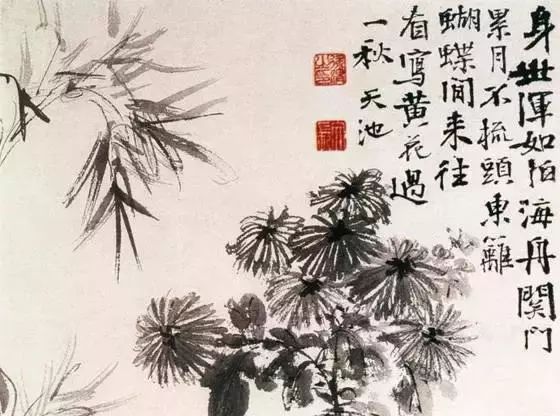 身世渾如泊海舟關門
累月不梳頭東籬
蝴蝶閒來往
看寫黃花過
一秋 天池